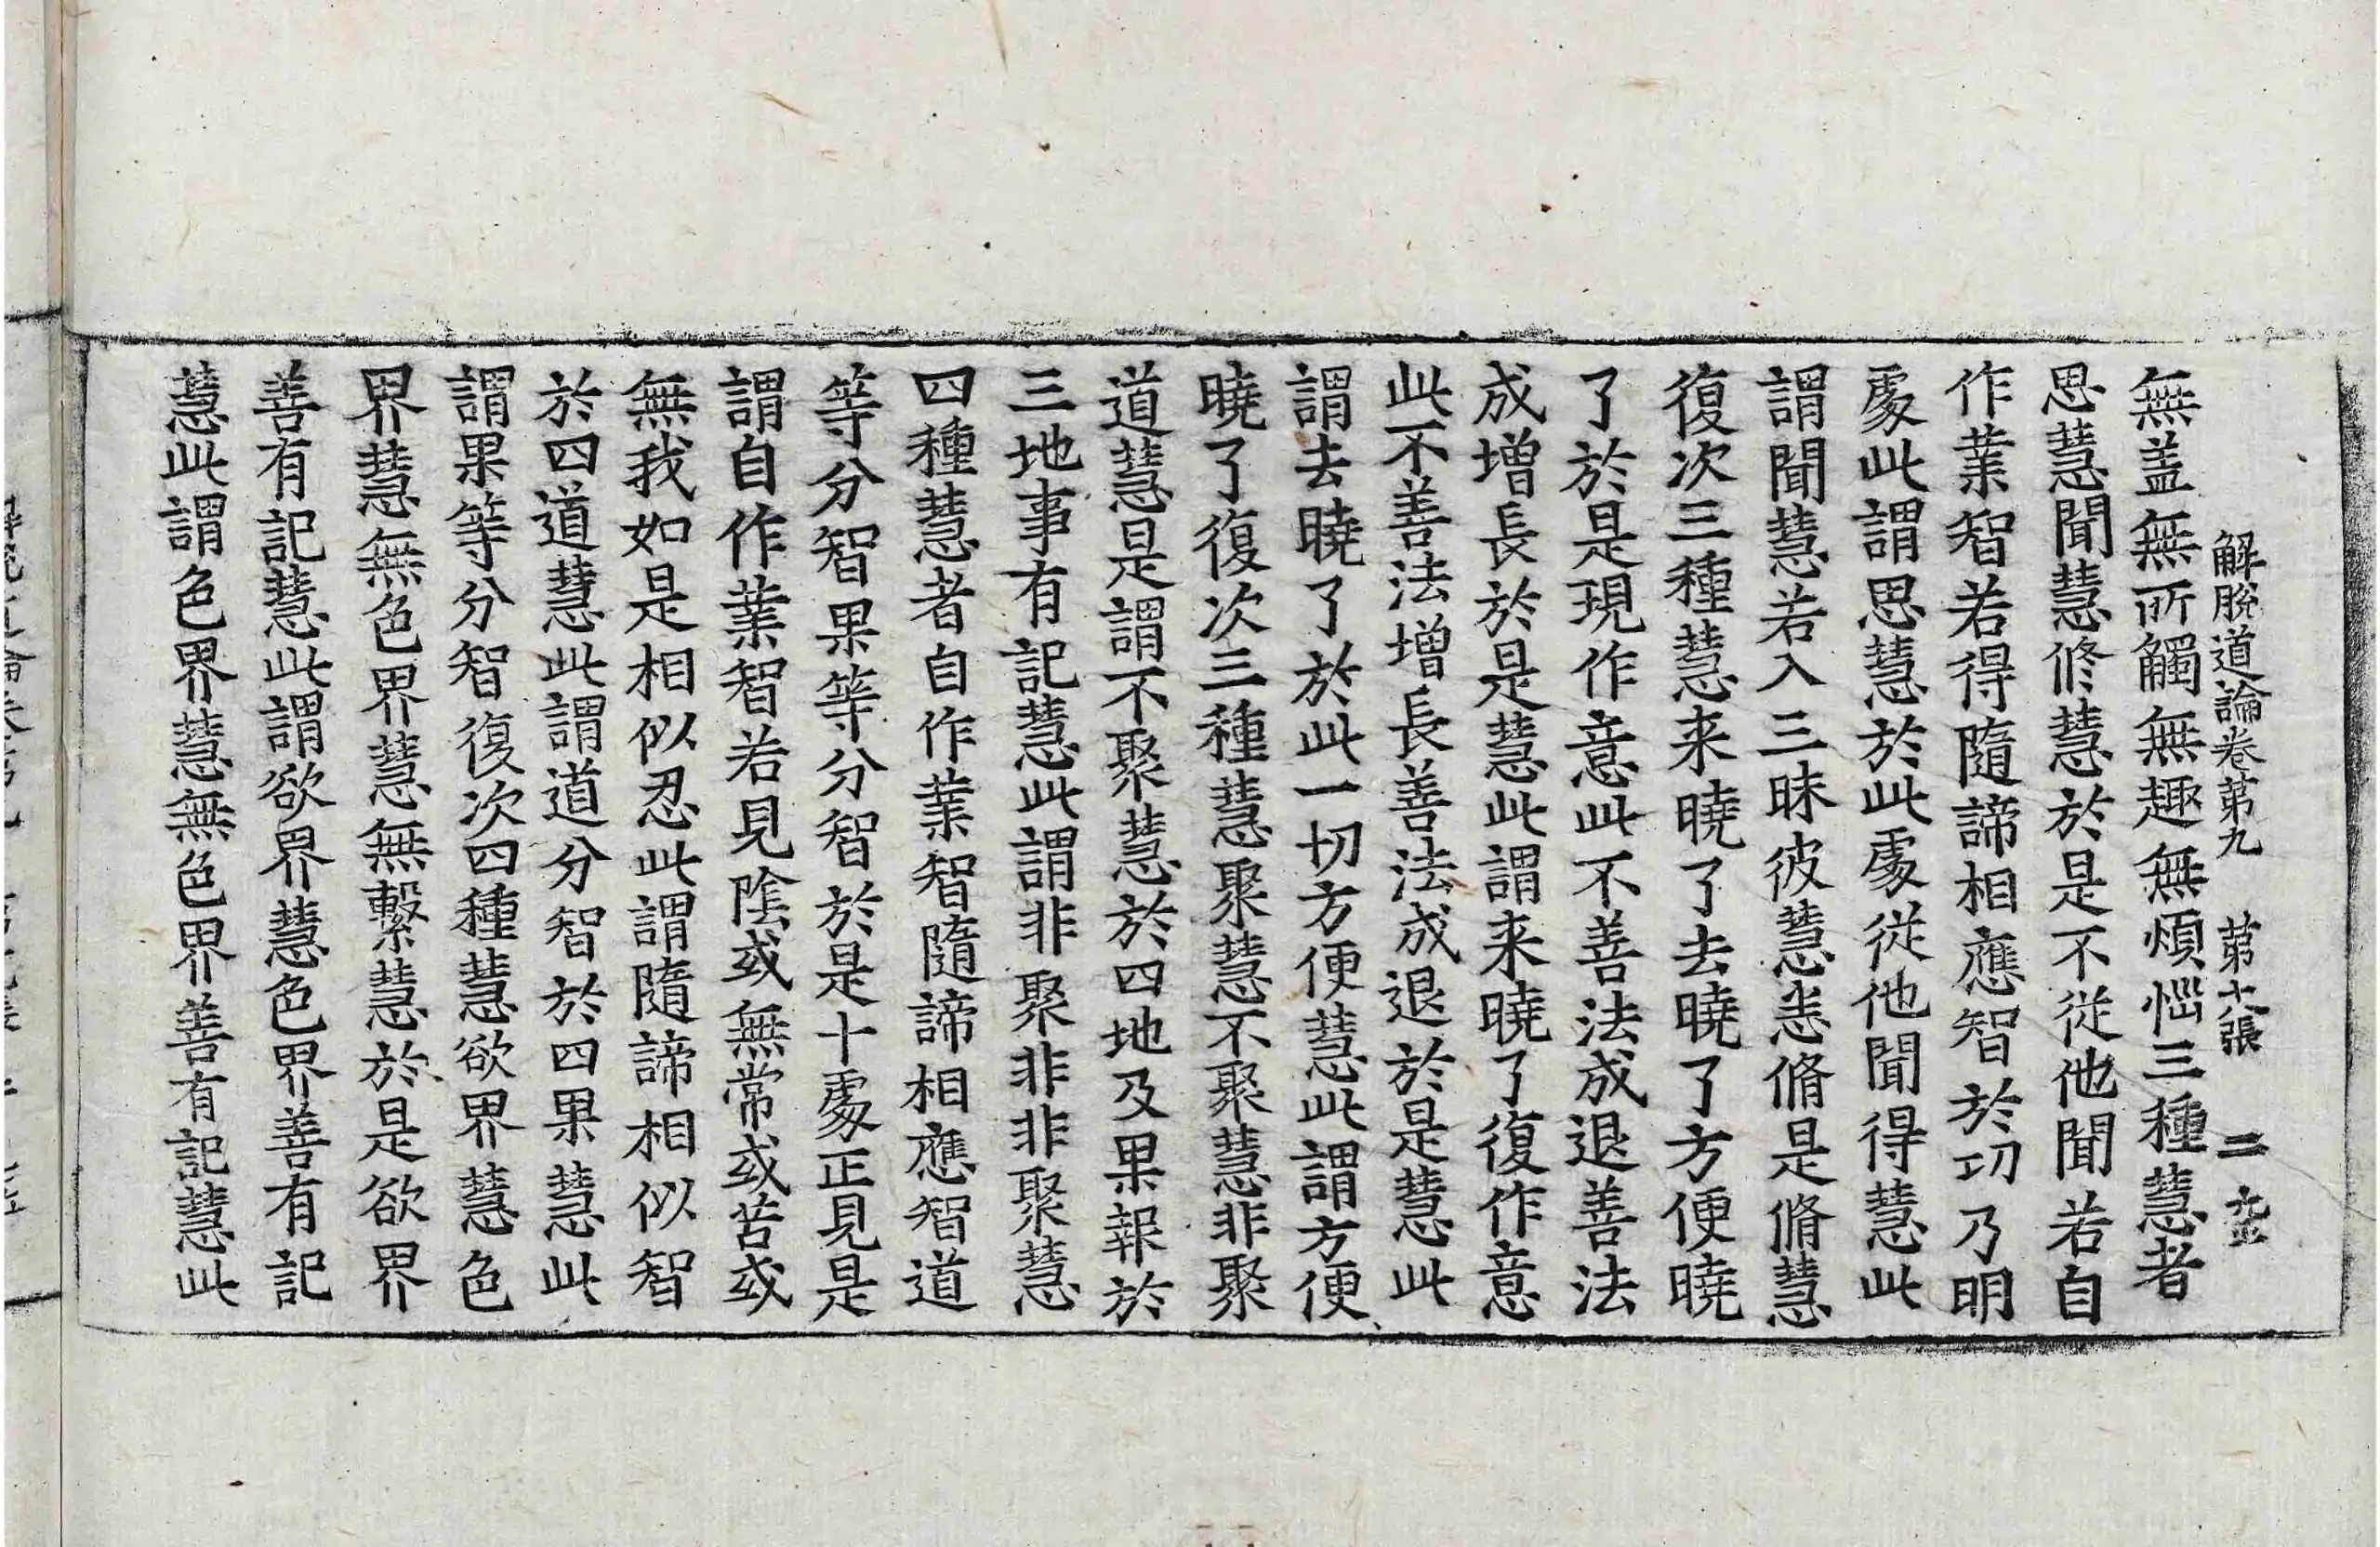 解脫道論卷第九 第十八張 二 𡉏
無盖無所觸無趣無煩惱三種慧者
思慧聞慧修慧於是不從他聞若自
作業智若得隨諦相應智於功乃明
處此謂思慧於此處從他聞得慧此
謂聞慧若入三昧彼慧悉脩是脩慧
復次三種慧来曉了去曉了方便曉
了於是現作意此不善法成退善法
成增長於是慧此謂来曉了復作意
此不善法增長善法成退於是慧此
謂去曉了於此一切方便慧此謂方便
曉了復次三種慧聚慧不聚慧非聚
道慧是謂不聚慧於四地及果報於
三地事有記慧此謂非聚非非聚慧
四種慧者自作業智隨諦相應智道
等分智果等分智於是十處正見是
謂自作業智若見陰或無常或苦或
無我如是相似忍此謂隨諦相似智
於四道慧此謂道分智於四果慧此
謂果等分智復次四種慧欲界慧色
界慧無色界慧無繫慧於是欲界
善有記慧此謂欲界慧色界善有記
慧此謂色界慧無色界善有記慧此